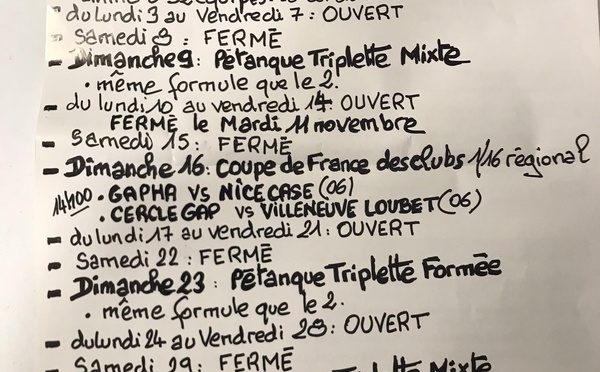 - du Lundi 3 au Vendredi 7 : OUVERT
- Samedi 8 : FERMÉ
- Dimanche 9 : Pétanque Triplette Mixte
• même formule que le 2.
- du lundi 10 au vendredi 14 : OUVERT
FERMÉ le Mardi 11 novembre
- Samedi 15 : FERMÉ
- Dimanche 16 : Coupe de France des clubs 1/16 régional
14H00 • GAPHA VS NICE CASE (06)
• CERCLE GAP vs VILLENEUVE LOUBET (06)
- du lundi 17 au vendredi 21 : OUVERT
- Samedi 22 : FERMÉ
- Dimanche 23 : Pétanque Triplette Formée
• même formule que le 2.
- du lundi 24 au Vendredi 28 : OUVERT
- Samedi 29 : FERMÉ
Triplette Mixte